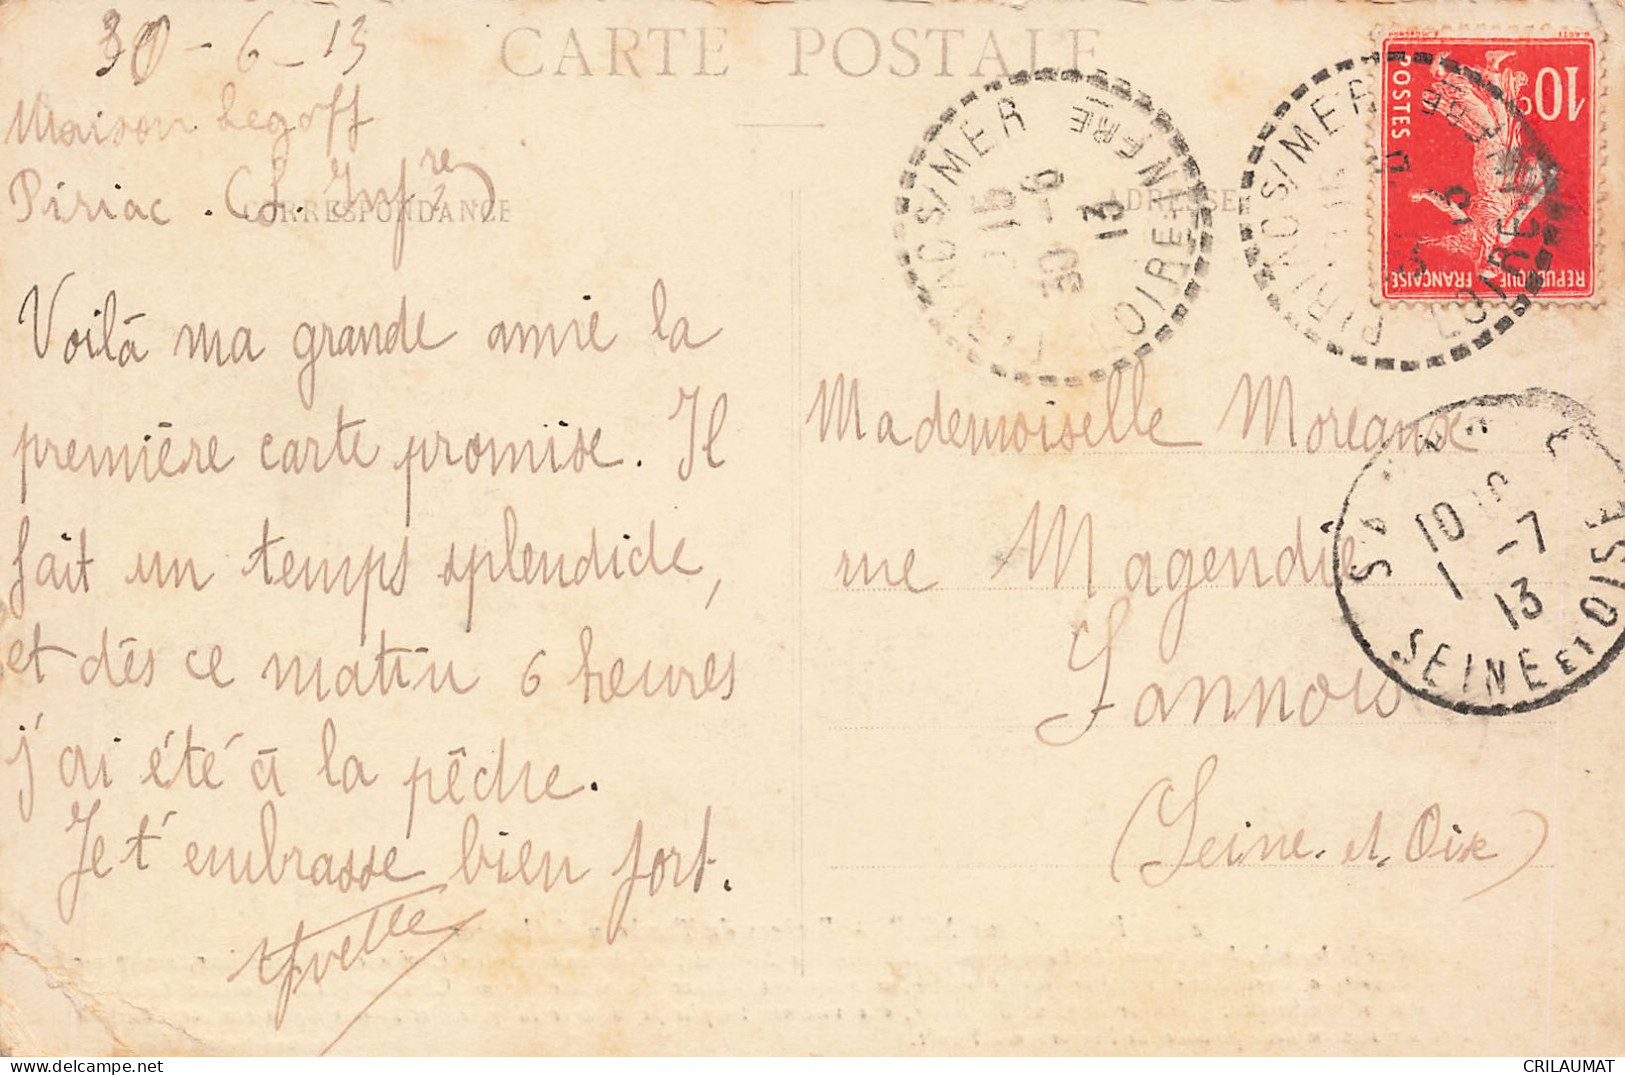 30 - 6 - 13
CARTE POSTALE
Maison Legoff
Piriac . (L. Infre)
CORRESPONDANCE
ADRESSE
Voilà ma grande amie la
première carte promise. Il
fait un temps splendide,
et dès ce matin 6 heures
j'ai été à la pêche.
Je t'embrasse bien fort.
Yvette
Mademoiselle Moreaux
rue Magendie
Sannois
(Seine. et. Oise)
PIRIAC S/MER
LOIRE INFRE
30 -6
13
PIRIAC S/MER
LOIRE INFRE
13
10c
POSTES
REPUBLIQUE FRANCAISE
10
1 -7
13
SEINE ET OISE
CRILAUMAT